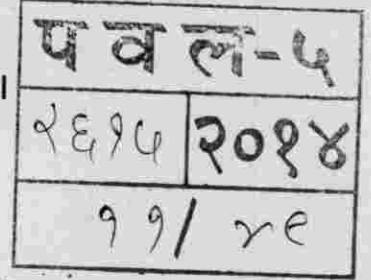 प व ल-५
२६१५ २०१४
११/ ४९